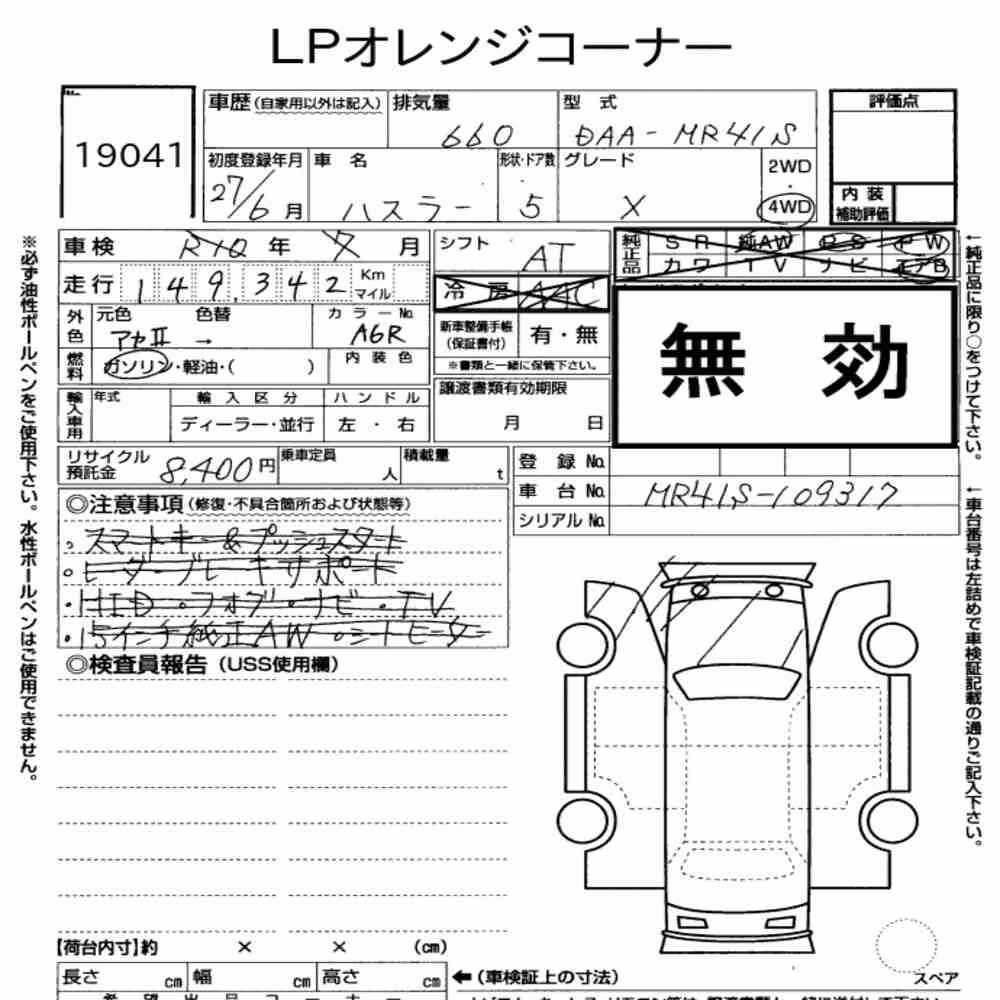 LPオレンジコーナー
19041
車歴(自家用以外は記入) 排気量 型式 評価点
660 DAA-MR41S
初度登録年月 車名 形状・ドア数 グレード 2WD
・
27/6月 ハスラー 5 X 4WD
内装
補助評価
車検 R10年 7月 シフト AT
純正品 SR 純AW PS PW
カワ TV ナビ エアB
走行 149,342 Km
マイル
冷房 AAC
外色 元色 色替 カラーNo.
アオⅡ → A6R
新車整備手帳
(保証書付) 有・無
燃料 ガソリン・軽油・( ) 内装色
※書類と一緒に保管下さい。
無効
輸入車用 年式 輸入区分 ハンドル
ディーラー・並行 左・右
譲渡書類有効期限
月 日
リサイクル
預託金 8,400円 乗車定員 人 積載量 t
登録No.
車台No. MR41S-109317
シリアルNo.
◎注意事項(修復・不具合箇所および状態等)
・スマートキー&プッシュスタート
○レーダーブレーキサポート
・HID・フォグ・ナビ・TV
・15インチ純正AW ○シートヒーター
◎検査員報告(USS使用欄)
【荷台内寸】約 × × (cm)
長さ cm 幅 cm 高さ cm ←(車検証上の寸法)
スペア
※必ず油性ボールペンをご使用下さい。水性ボールペンはご使用できません。
←純正品に限り○をつけて下さい。
←車台番号は左詰めで車検証記載の通りご記入下さい。